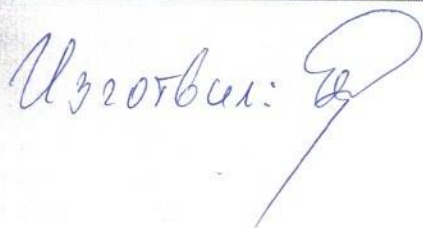 Изготвил: